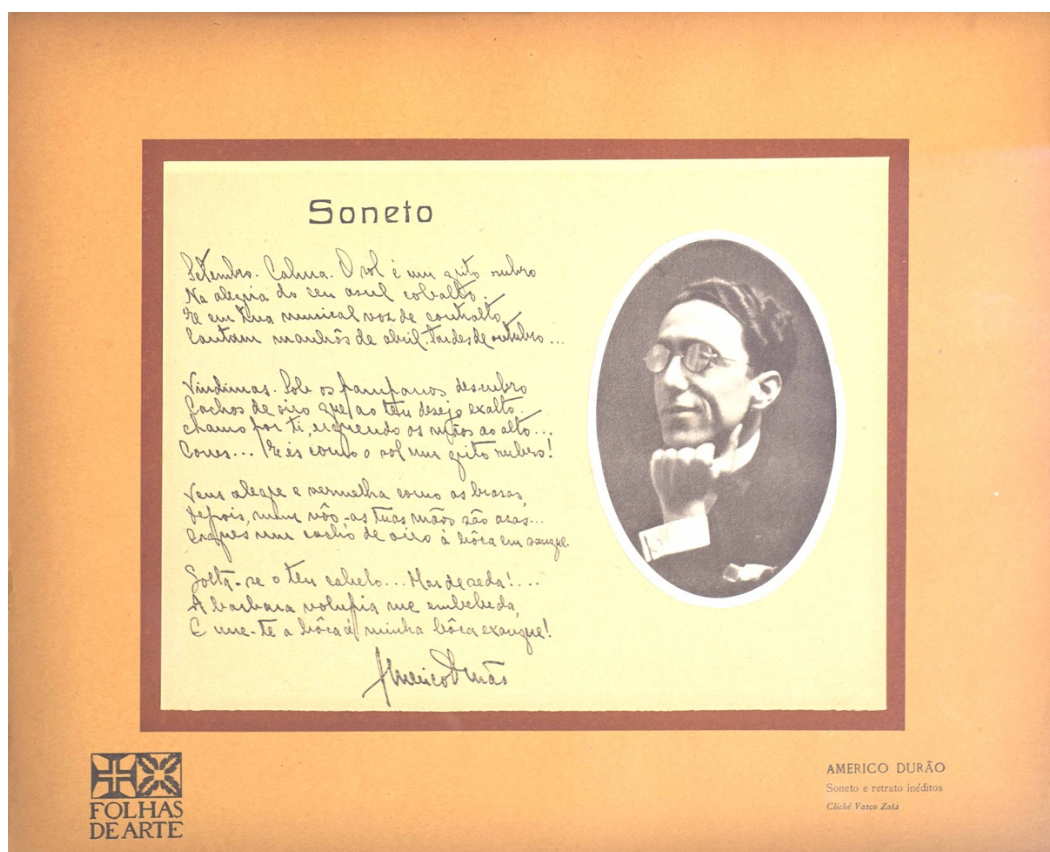 Soneto
Setembro. Calma. O sol é um grito rubro
Na alegria do ceu azul cobalto.
E em tua musical voz de contralto,
Cantam manhãs de abril, tardes de outubro...
Vindimas. Sob os pampanos descubro
Cachos de oiro que ao teu desejo exalto.
Chamo por ti, erguendo as mãos ao alto...
Corres... E és como o sol um grito rubro!
Vens alegre e vermelha como as brasas,
Depois, num vôo - as tuas mãos são asas...
Ergues um cacho de oiro á bôca em sangue.
Solta-se o teu cabelo... Mar de seda!...
A barbara volupia me embebeda,
E une-te a bôca á minha bôca exangue!
Americo Durão
FOLHAS
DE ARTE
AMERICO DURÃO
Soneto e retrato inéditos
Cliché Vasco Zala